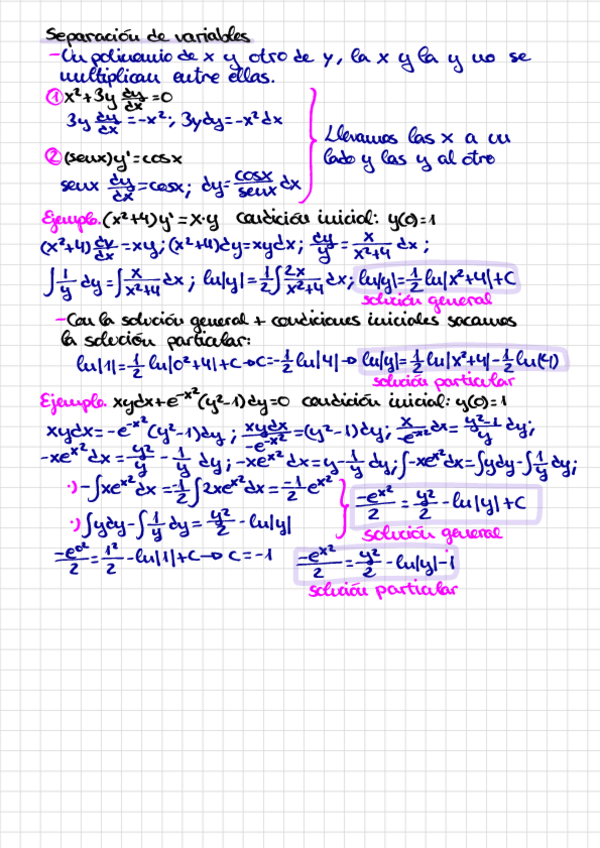 Separación de variables
-Un polinomio de x y otro de y, la x y la y no se
multiplican entre ellas.
① x²+3y dy/dx =0
3y dy/dx =-x²; 3ydy=-x²dx
② (senx)y'=cosx
senx dy/dx=cosx; dy=cosx/senx dx
Llevamos las x a un
lado y las y al otro
Ejemplo. (x²+4)y'=x·y condición inicial: y(0)=1
(x²+4)dy/dx=xy; (x²+4)dy=xydx; dy/y=x/x²+4 dx;
∫1/y dy=∫x/x²+4 dx; ln|y|=1/2∫2x/x²+4 dx; ln|y|=1/2 ln|x²+4|+C
solución general
-Con la solución general + condiciones iniciales sacamos
la solución particular:
ln|1|=1/2 ln|0²+4|+C→C=-1/2 ln|4|→ ln|y|=1/2 ln|x²+4|-1/2 ln(4)
solución particular
Ejemplo. xydx+e^-x²(y²-1)dy=0 condición inicial: y(0)=1
xydx=-e^-x²(y²-1)dy; xydx/-e^-x²=(y²-1)dy; x/-e^-x² dx=y²-1/y dy;
-xe^x²dx=y²/y-1/y dy; -xe^x²dx=y-1/y dy; ∫-xe^x²dx=∫ydy-∫1/y dy;
·) -∫xe^x²dx=-1/2∫2xe^x²dx=-1/2 e^x²
·) ∫ydy-∫1/y dy=y²/2-ln|y|
-e^x²/2=y²/2-ln|y|+C
solución general
-e^0²/2=1²/2-ln|1|+C→C=-1
-e^x²/2=y²/2-ln|y|-1
solución particular